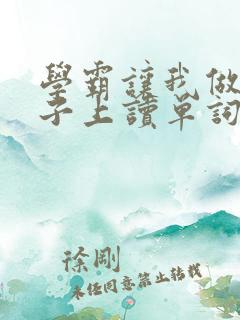 學霸讓我做
子上讀單詞
徐剛
未經同意禁止轉載